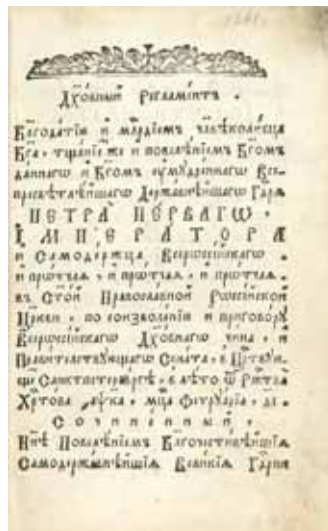 Дꙋхо́вный Регла́ментъ .
Бл҃года́тїю и҆ млⷭ҇рдїемъ чл҃вѣколю́бца
Бг҃а , тща́нїемже и҆ повелѣ́нїемъ Бг҃омъ
да́ннагѡ и҆ Бг҃омъ ᲂу҆мꙋдре́ннагѡ Все-
пресвѣтлѣ́йшагѡ Держа́внѣйшагѡ Гдⷭ҇ря
ПЕТРА̀ ПЕ́РВАГѠ ,
І҆МПЕРА́ТОРА
и҆ Самоде́ржца Всерѡссі́йскагѡ ,
и҆ прѡ́тчаѧ , и҆ прѡ́тчаѧ , и҆ прѡ́тчаѧ .
въ Ст҃о́й Правосла́вной Рѡссі́йской
Цр҃кви , по соизволе́нїю и҆ пригово́рꙋ
Всерѡссі́йскагѡ Дꙋхо́внагѡ чи́на , и҆
Прави́телствꙋющагѡ Сена́та , в Црⷭ҇твꙋю-
щѐ Санктпетербꙋ́ргѣ , в лѣ́то ѿ Рждⷭ҇тва̀
Хрⷭ҇то́ва ҂аѱка , мцⷭ҇а Феврꙋа́рїа , де-
Сочине́нный ,
Нн҃ѣ Повелѣ́нїемъ Бл҃гочести́вѣйшїѧ
Самодержа́внѣйшїѧ Вели́кїѧ Гдⷭ҇рни